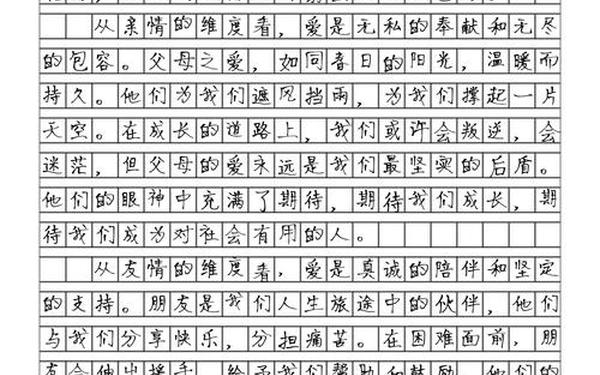 从亲情的维度看，爱是无私的奉献和无尽
的包容。父母之爱，如同春日的阳光，温暖而
持久。他们为我们遮风挡雨，为我们撑起一片
天空。在成长的道路上，我们或许会叛逆，会
迷茫，但父母的爱永远是我们最坚实的后盾。
他们的眼神中充满了期待，期待我们成长，期
待我们成为对社会有用的人。
从友情的维度看，爱是真诚的陪伴和坚定
的支持。朋友是我们人生旅途中的伙伴，他们
与我们分享快乐，分担痛苦。在困难面前，朋
友会伸出援手，给予我们帮助和鼓励。他们的